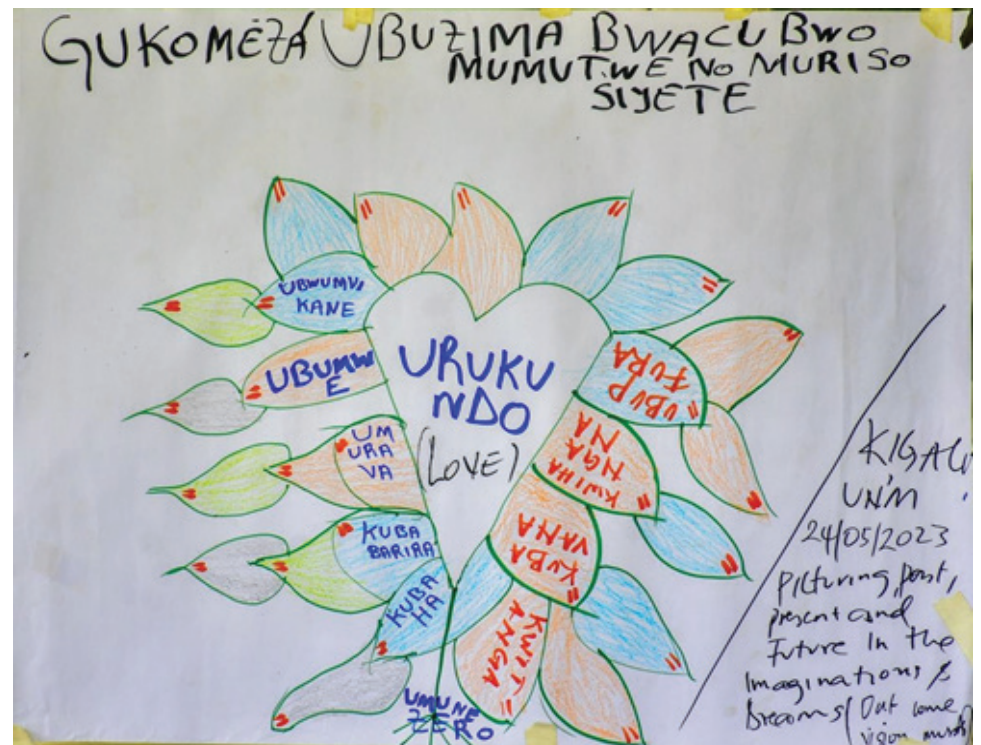 GUKOMEZA UBUZIMA BWACU BWO
MUMUTWE NO MURISO
SIYETE
UBWUMVI
KANE
UBUMW
E
UM
URA
VA
KUBA
BARIRA
KUBA
HA
URUKU
NDO
(LOVE)
UBUP
FURA
KWIHA
NGA
NA
KUBA
VANA
KWIT
ANGA
UMUNE
ZERO
KIGALI
24/05/2023
Picturing past,
present and
Future In the
Imaginations &
Dreams (Out come
vision